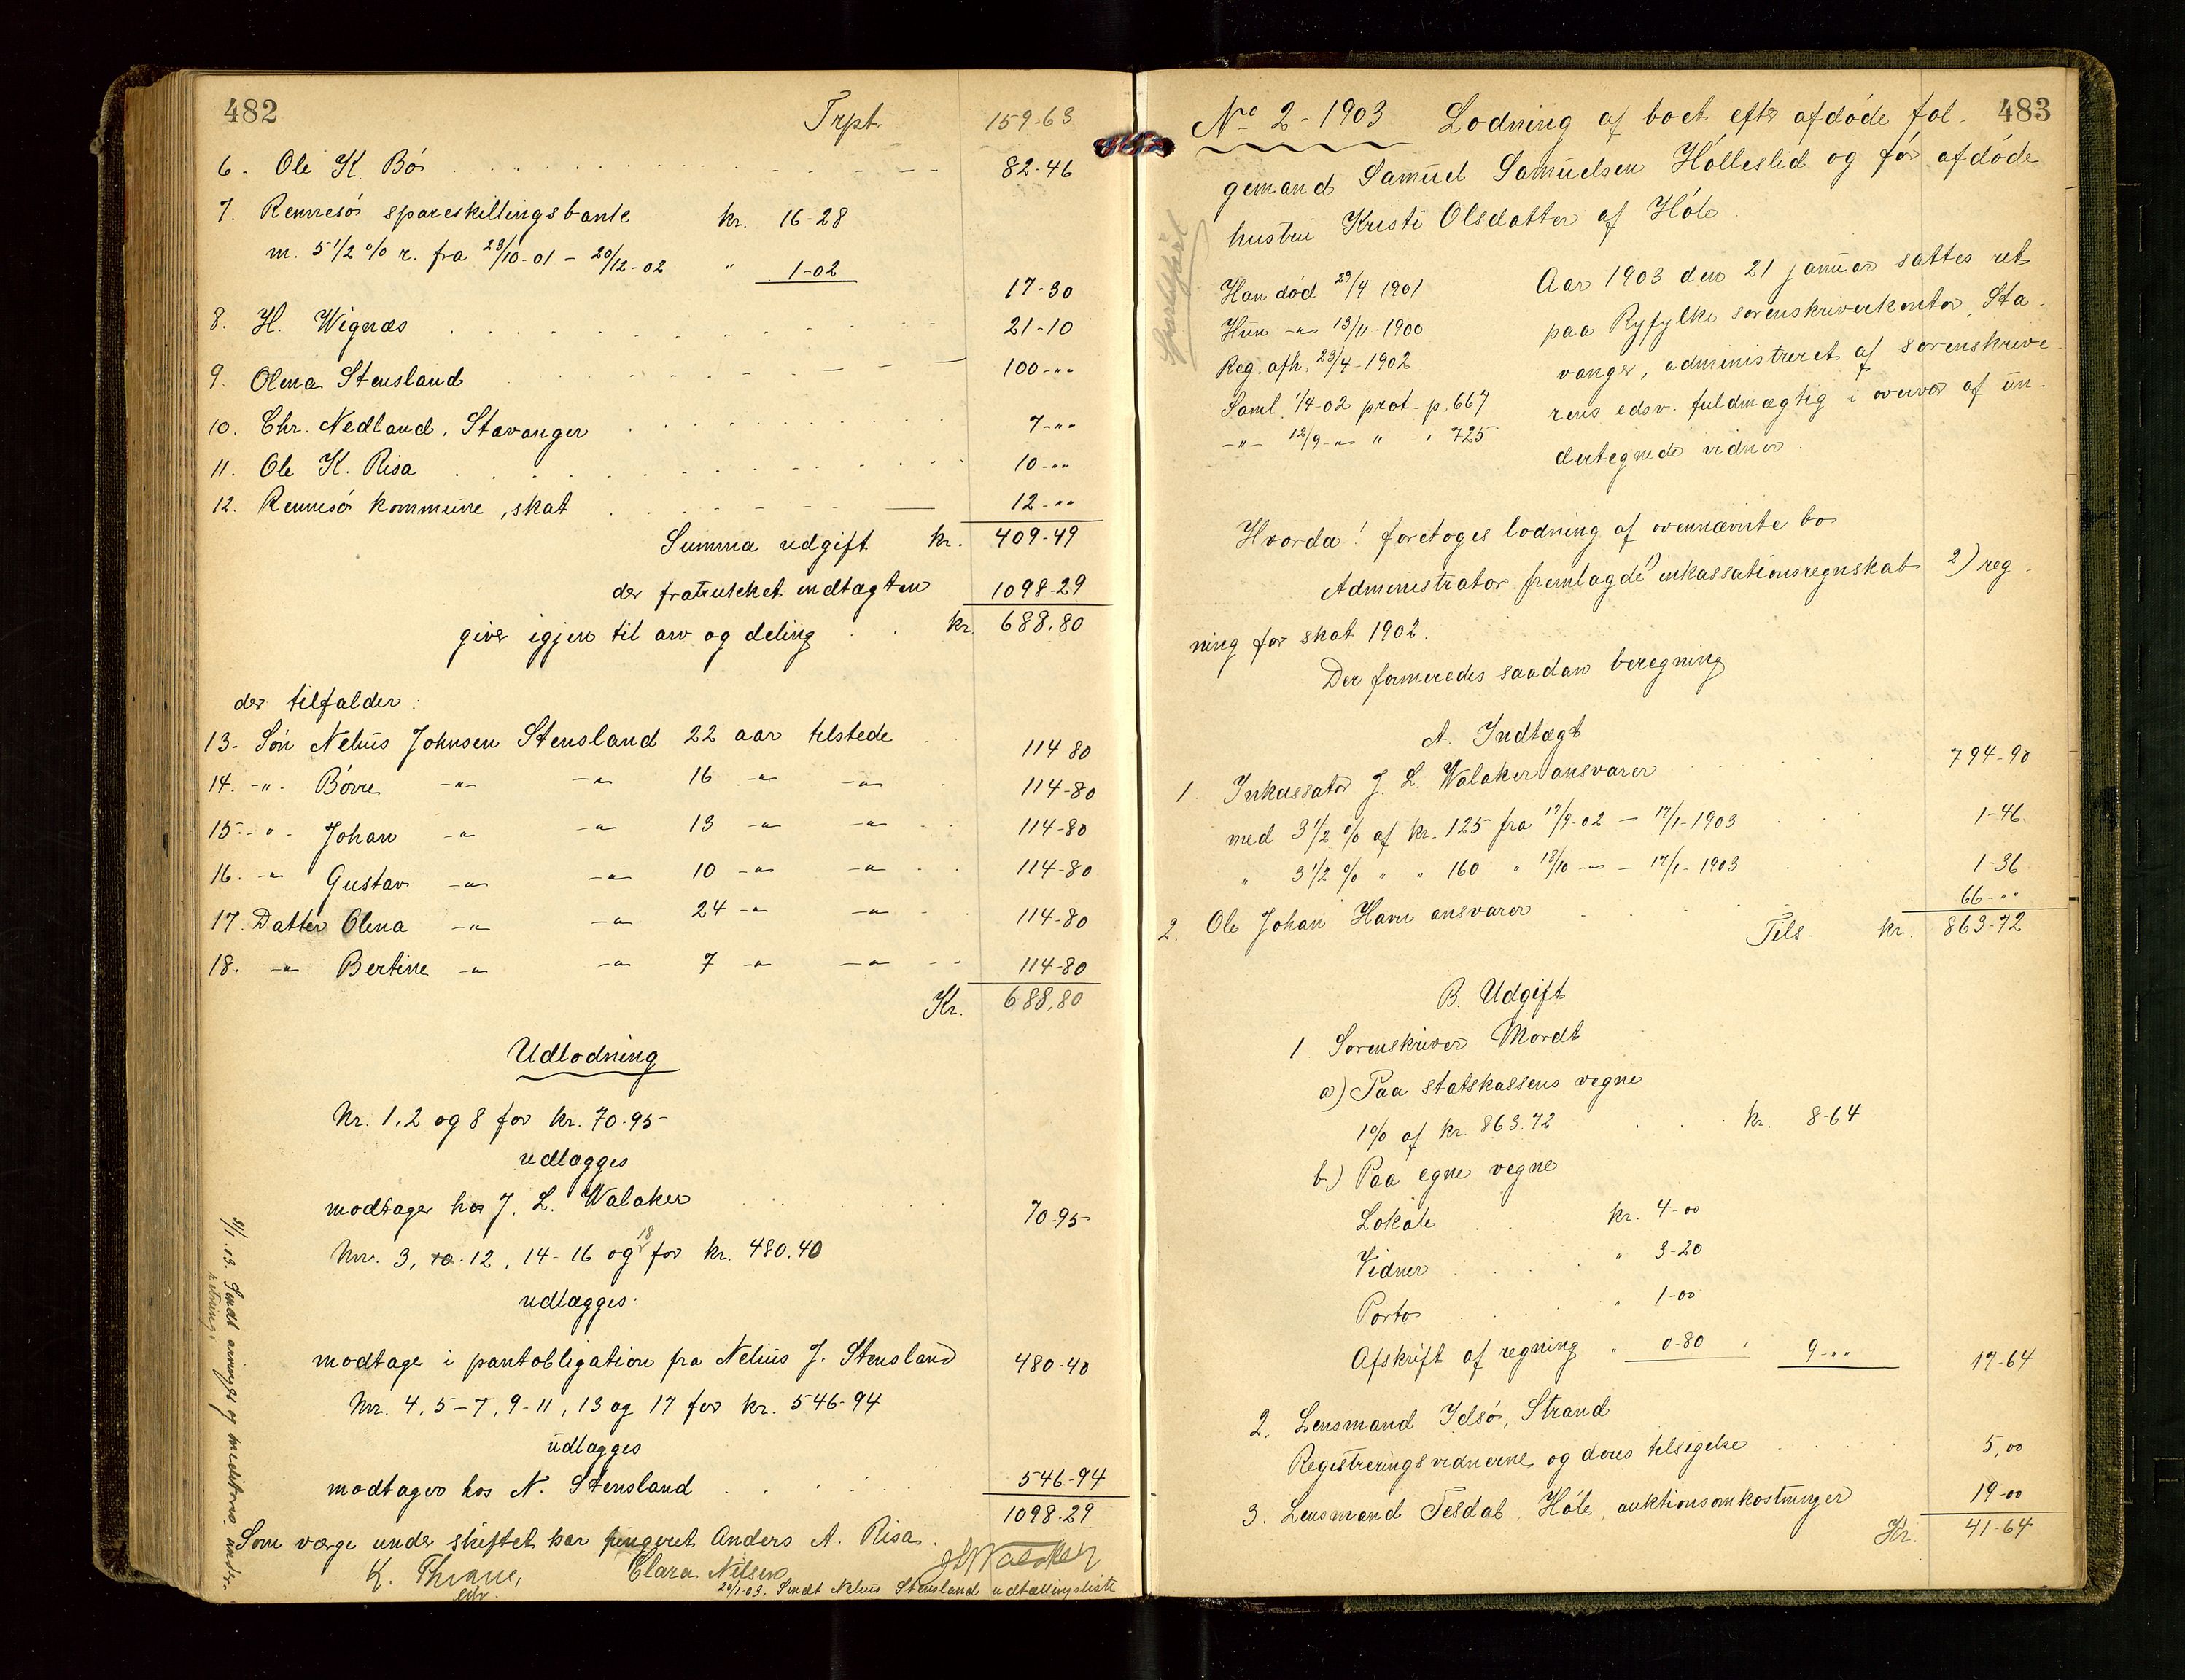 482
Trpt. 159-63
6. Ole K. Bö 82-46
7. Rennesö spareskillingsbank kr. 16-28
m. 5 1/2 % r. fra 23/10-01 - 20/12-02 " 1-02
17-30
8. H. Wignæs 21-10
9. Olena Stensland 100-""
10. Chr. Nedland, Stavanger 7-""
11. Ole K. Risa 10-""
12. Rennesö kommune, skat 12-""
Summa udgift kr. 409-49
der fratrukket indtægten 1098-29
giver igjen til arv og deling kr. 688,80
der tilfalder:
13. Sön Nelius Johnsen Stensland 22 aar tilstede 114 80
14. -"- Börre -"- -"- 16 -"- -"- 114-80
15. -"- Johan -"- -"- 13 -"- -"- 114-80
16. -"- Gustav -"- -"- 10 -"- -"- 114-80
17. Datter Olena -"- -"- 24 -"- -"- 114-80
18. -"- Bertine -"- -"- 7 -"- -"- 114-80
Kr. 688,80
Udlodning
Nr. 1, 2 og 8 for kr. 70-95
udlægges
modtager hos J. L. Walaker 70-95
Nr. 3, 12, 14-16 og 18 for kr. 480.40
udlægges
modtager i pantobligation fra Nelius J. Stensland 480-40
Nr. 4, 5-7, 9-11, 13 og 17 for kr. 546-94
udlægges
modtager hos N. Stensland 546-94
1098-29
Som værge under skiftet har fungeret Anders A. Risa.
K. Thrane, Clara Nilsen JLWalaker
edv.
20/1-03. Sendt Nelius Stensland udtællingsliste
8/1.03. Sendt og under-
retning.
483
No 2-1903 Lodning af boet efter afdöde fol-
gemand Samuel Samuelsen Hölleslid og för afdöde
hustru Kristi Olsdatter af Höle
Han död 29/4 1901
Hun -"- 13/11-1900
Reg. afh. 23/4-1902
Saml. 1/4-02 prot. p. 667
-"- 12/9-"- " " 725
Aar 1903 den 21 januar sattes ret
paa Ryfylke sorenskriverkontor, Sta-
vanger, administreret af sorenskrive-
rens edsv. fuldmægtig i overvær af un-
dertegnede vidner.
Hvorda! foretoges lodning af ovennævnte bo
Administrator fremlagde 1) inkassationsregnskab 2) reg-
ning for skat 1902.
Der formeredes saadan beregning
A. Indtægt
1. Inkassator J. L. Walaker ansvarer 794-90
med 3 1/2 % af kr. 125 fra 17/9-02 - 17/1-1903 1-46
" 3 1/2 % " " 160 " 18/10 -"- - 17/1-1903 1-36
2. Ole Johan Havn ansvarer 66-""
Tils. kr. 863-72
B. Udgift
1 Sorenskriver Mordt
a) Paa statskassens vegne
1% af kr. 863.72 kr. 8-64
b.) Paa egne vegne
Lokale kr. 4-00
Vidner " 3-20
Porto " 1-00
Afskrift af regning " 0-80 " 9-"" 17-64
2. Lensmand Idsö, Strand
Registreringsvidnerne og deres tilsigelse 5,00
3. Lensmand Tesdal, Höle, auktionsomkostninger 19-00
Kr. 41-64